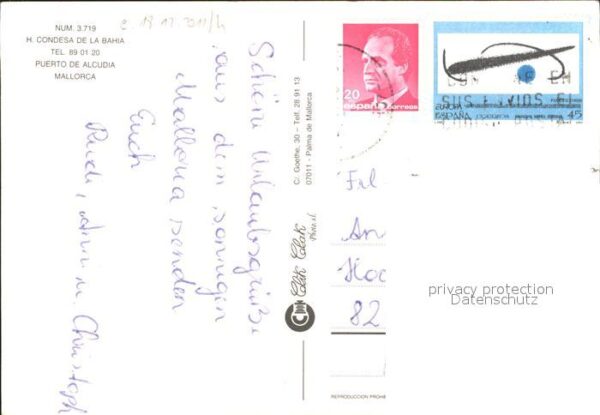 NUM. 3.719
H. CONDESA DE LA BAHIA
TEL. 89 01 20
PUERTO DE ALCUDIA
MALLORCA
Schöne Urlaubsgrüße
aus dem sonnigen
Mallorca senden
Euch
Rudi, Anni u. Christoph
C/. Goethe, 30 – Telf. 28 91 13
07011 - Palma de Mallorca
Clik Clak
Photo sl.
REPRODUCCION PROHIB
20
españa correos
EUROPA
ESPAÑA
correos
45
SUS ENVIOS
Frl
An
Hoc
82
privacy protection
Datenschutz